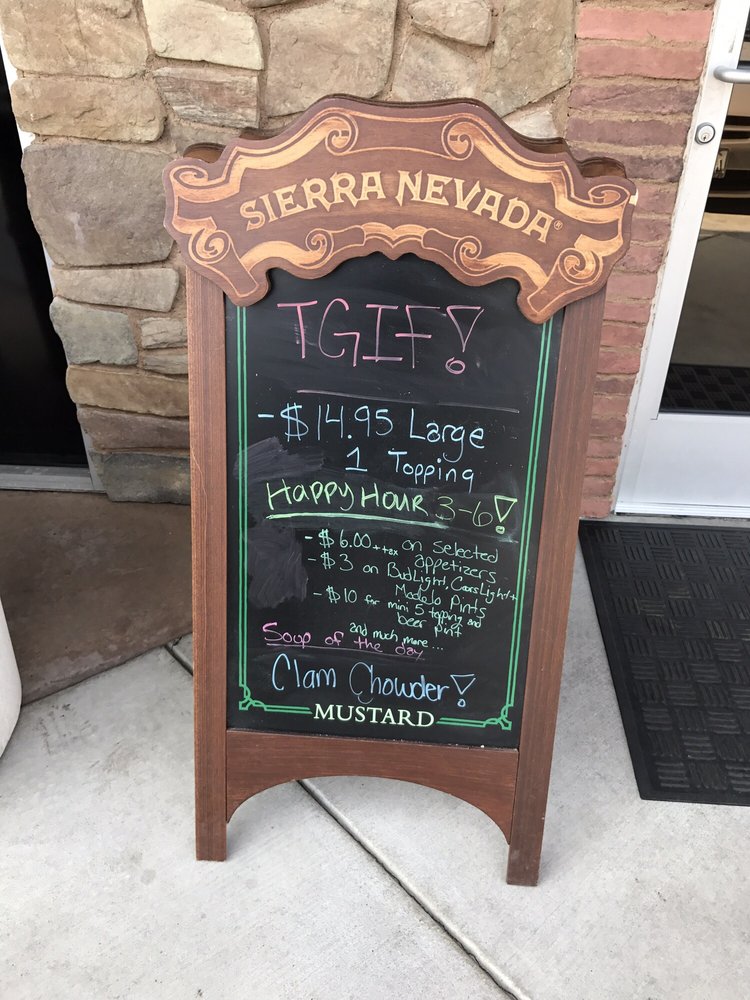 SIERRA NEVADA®
TGIF!
- $14.95 Large
1 Topping
Happy Hour 3-6!
- $6.00 + tax on selected
appetizers
- $3 on BudLight, CoorsLight +
Modelo Pints
- $10 for mini 5 topping and
beer pint
and much more...
Soup of the day
Clam Chowder!
MUSTARD